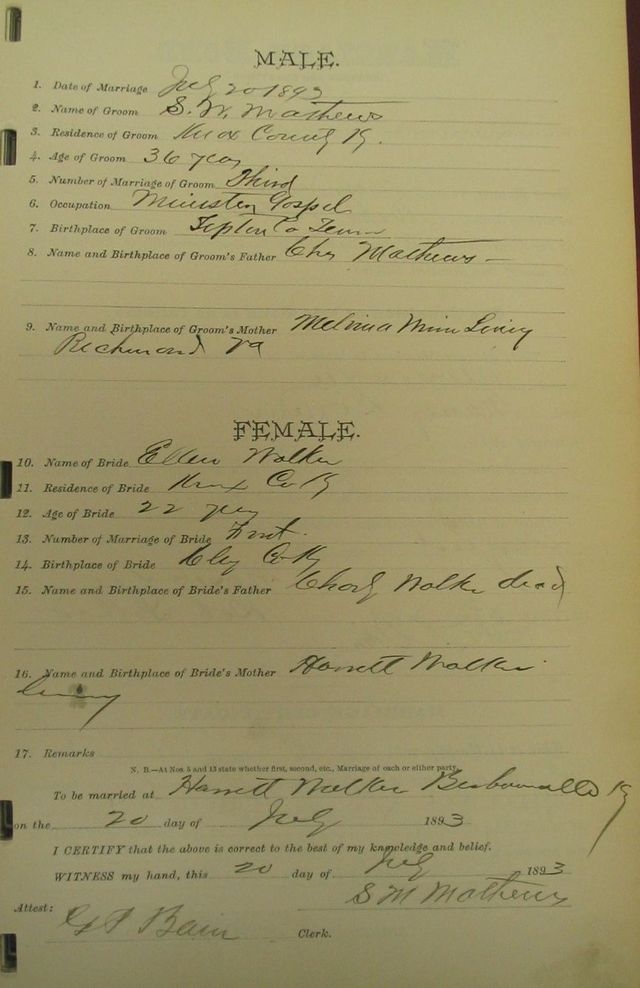 MALE.
1. Date of Marriage July 20 1893
2. Name of Groom S. W. Mathews
3. Residence of Groom Knox County Ky.
4. Age of Groom 36 years
5. Number of Marriage of Groom Third
6. Occupation Minister Gospel
7. Birthplace of Groom Tipton Co Tenn
8. Name and Birthplace of Groom's Father Chas Mathews
9. Name and Birthplace of Groom's Mother Melvina Living
Richmond Va
FEMALE.
10. Name of Bride Ellen Walker
11. Residence of Bride Knox Co Ky
12. Age of Bride 22 years
13. Number of Marriage of Bride First
14. Birthplace of Bride Clay Co Ky
15. Name and Birthplace of Bride's Father Walker dead
16. Name and Birthplace of Bride's Mother Harrett Walker
living
17. Remarks
N. B.—At Nos. 5 and 13 state whether first, second, etc., Marriage of each or either party.
To be married at Harrett Walker Barbourville Ky
on the 20 day of July 1893
I CERTIFY that the above is correct to the best of my knowledge and belief.
WITNESS my hand, this 20 day of July 1893
S M Mathews
Attest:
Bain Clerk.